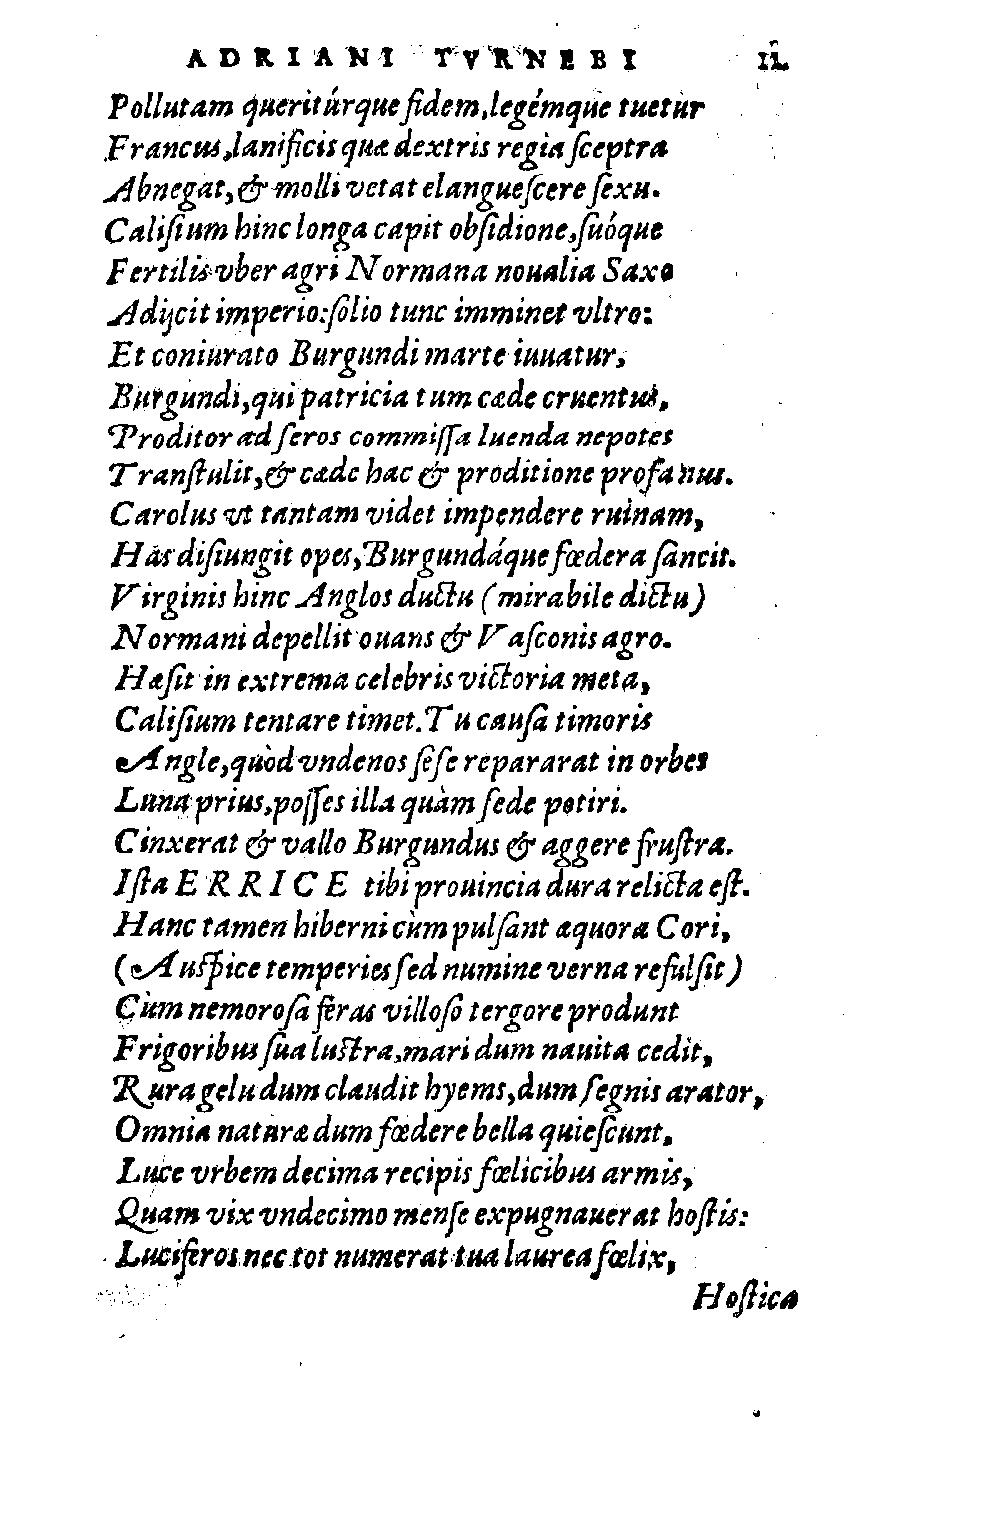 ADRIANI TVRNEBI IL
Pollutam queritúrque fidem, legémque tuetur
Francus, lanificis quæ dextris regia sceptra
Abnegat, & molli vetat elanguescere sexu.
Calisium hinc longa capit obsidione, suóque
Fertilis vber agri Normana noualia Saxo
Adijcit imperio: solio tunc imminet vltro:
Et coniurato Burgundi marte iuuatur,
Burgundi, qui patricia tum cæde cruentus,
Proditor ad seros commissa luenda nepotes
Transtulit, & cæde hac & proditione profanus.
Carolus vt tantam videt impendere ruinam,
Has disiungit opes, Burgundáque fœdera sancit.
Virginis hinc Anglos ductu (mirabile dictu)
Normani depellit ouans & Vasconis agro.
Hæsit in extrema celebris victoria meta,
Calisium tentare timet. Tu causa timoris
Angle, quòd vndenos sese repararat in orbes
Luna prius, posses illa quàm sede potiri.
Cinxerat & vallo Burgundus & aggere frustra.
Ista ERRICE tibi prouincia dura relicta est.
Hanc tamen hiberni cùm pulsant æquora Cori,
(Auspice temperies sed numine verna refulsit)
Cùm nemorosa feras villoso tergore produnt
Frigoribus sua lustra, mari dum nauita cedit,
Rura gelu dum claudit hyems, dum segnis arator,
Omnia naturæ dum fœdere bella quiescunt,
Luce vrbem decima recipis fœlicibus armis,
Quam vix vndecimo mense expugnauerat hostis:
Luciferos nec tot numerat tua laurea fœlix,
Hostica